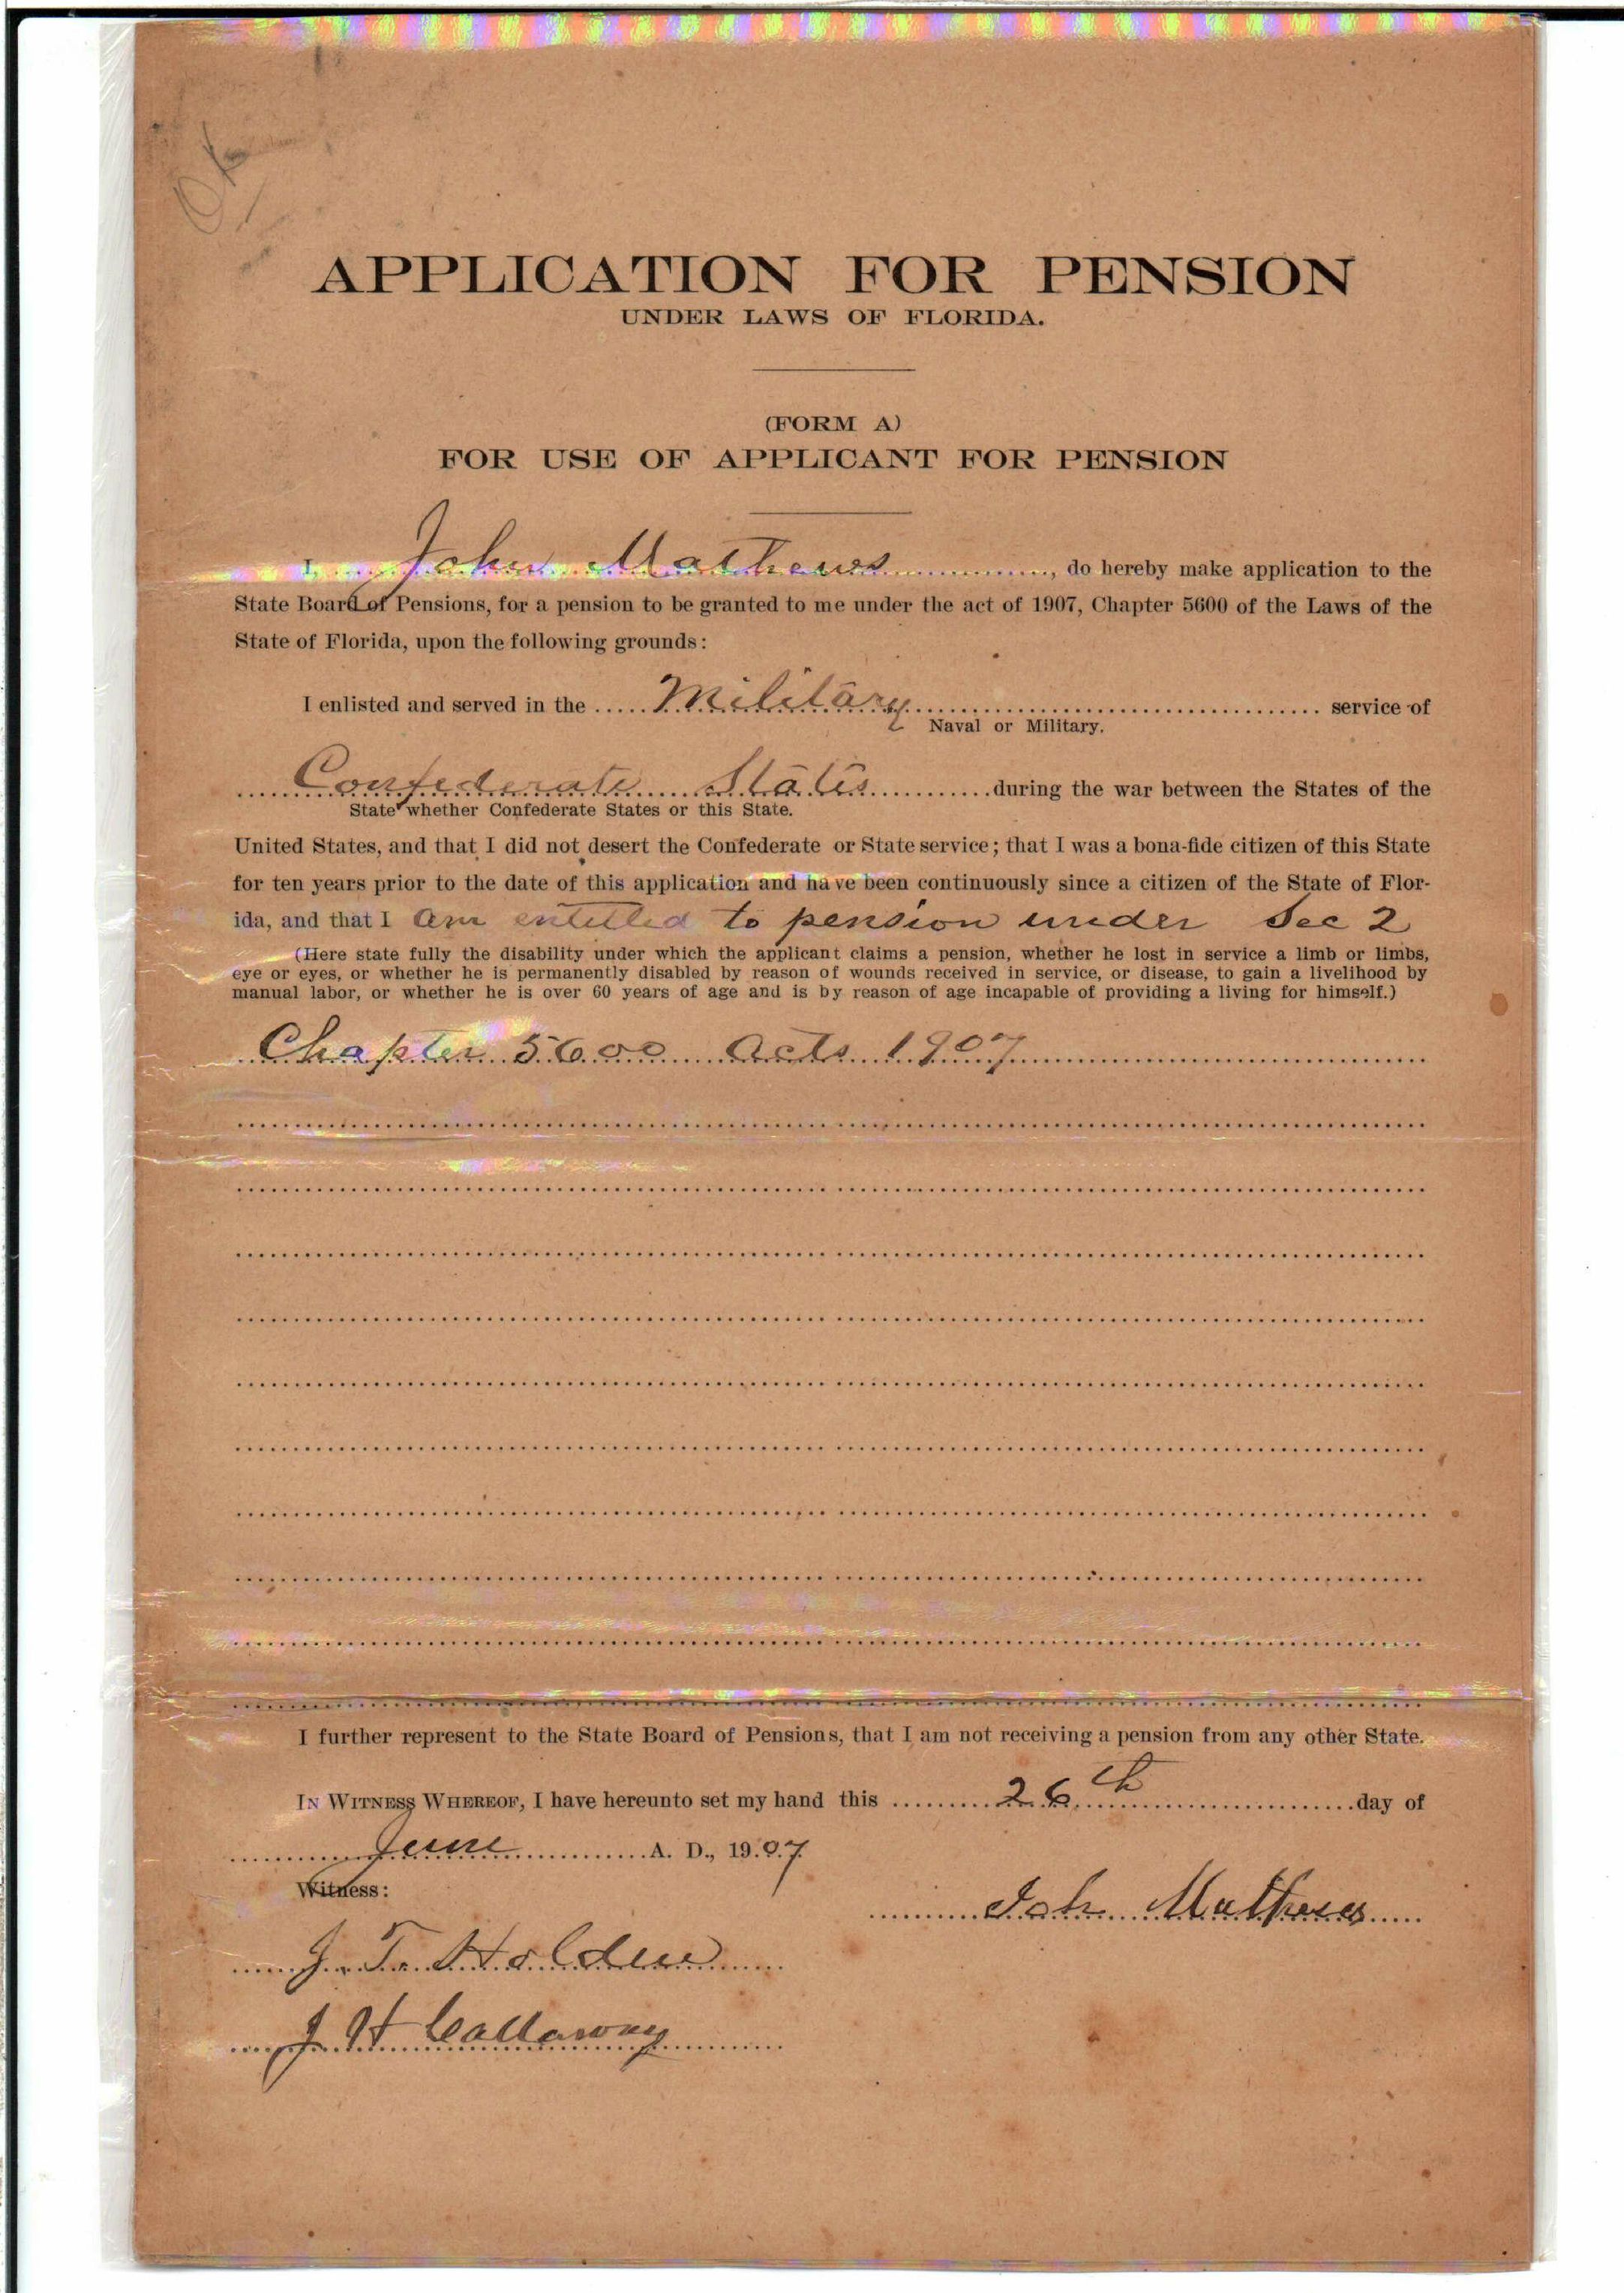 OK
APPLICATION FOR PENSION
UNDER LAWS OF FLORIDA.
(FORM A)
FOR USE OF APPLICANT FOR PENSION
I, John Mathews, do hereby make application to the
State Board of Pensions, for a pension to be granted to me under the act of 1907, Chapter 5600 of the Laws of the
State of Florida, upon the following grounds:
I enlisted and served in the Military service of
Naval or Military.
Confederate States during the war between the States of the
State whether Confederate States or this State.
United States, and that I did not desert the Confederate or State service; that I was a bona-fide citizen of this State
for ten years prior to the date of this application and have been continuously since a citizen of the State of Flor-
ida, and that I am entitled to pension under Sec 2
(Here state fully the disability under which the applicant claims a pension, whether he lost in service a limb or limbs,
eye or eyes, or whether he is permanently disabled by reason of wounds received in service, or disease, to gain a livelihood by
manual labor, or whether he is over 60 years of age and is by reason of age incapable of providing a living for himself.)
Chapter 5600 Acts 1907
I further represent to the State Board of Pensions, that I am not receiving a pension from any other State.
IN WITNESS WHEREOF, I have hereunto set my hand this 26th day of
June A. D., 1907
Witness:
John Mathews
J. T. Holden
J H Callaway